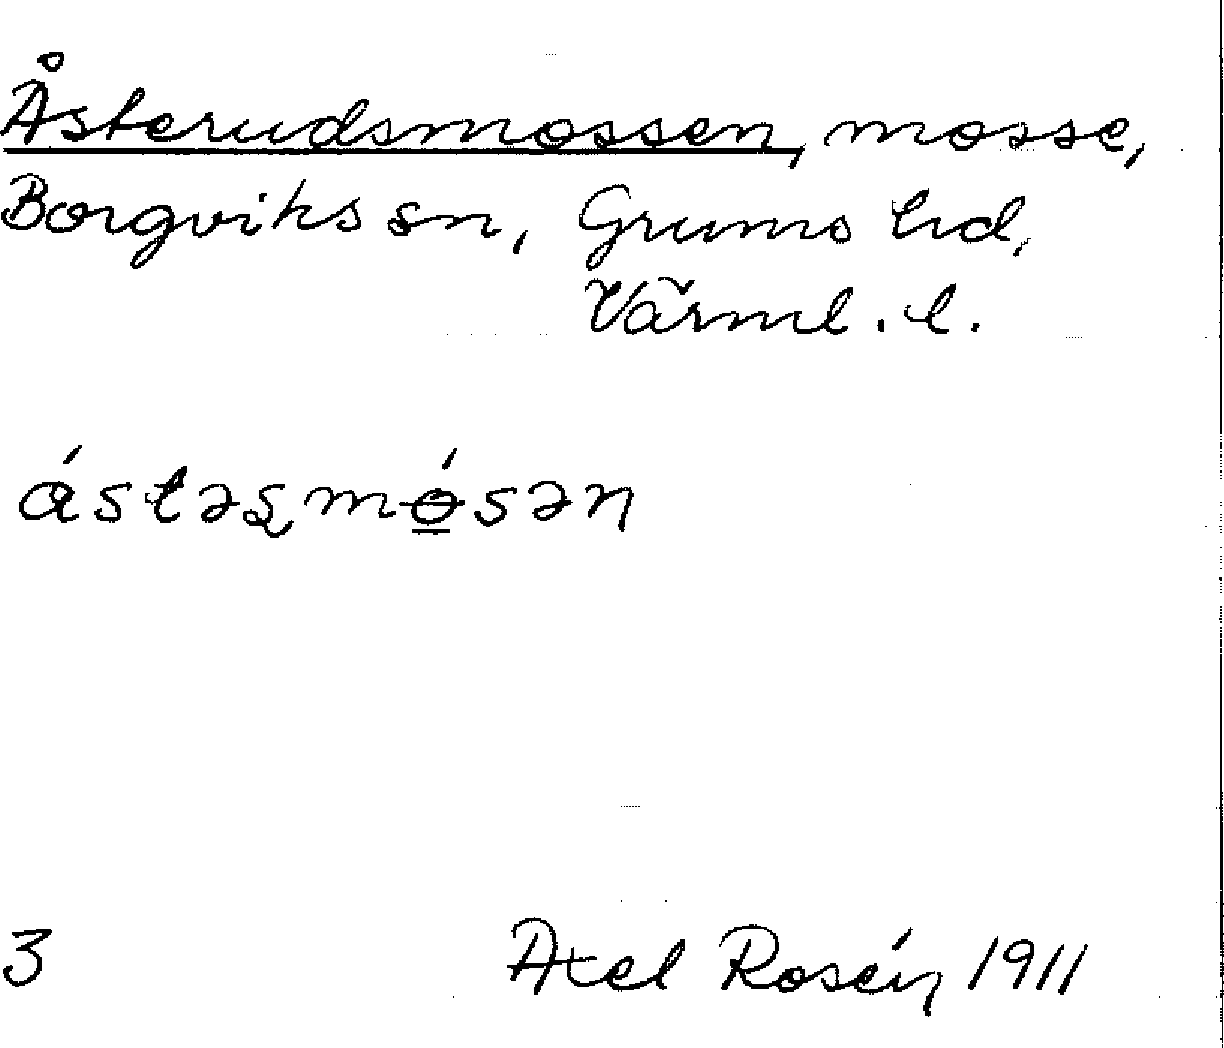 Åsterudsmossen, mosse,
Borgviks sn, Grums hd,
Värml. l.
ástəʂmө́sən
3 Axel Rosén 1911